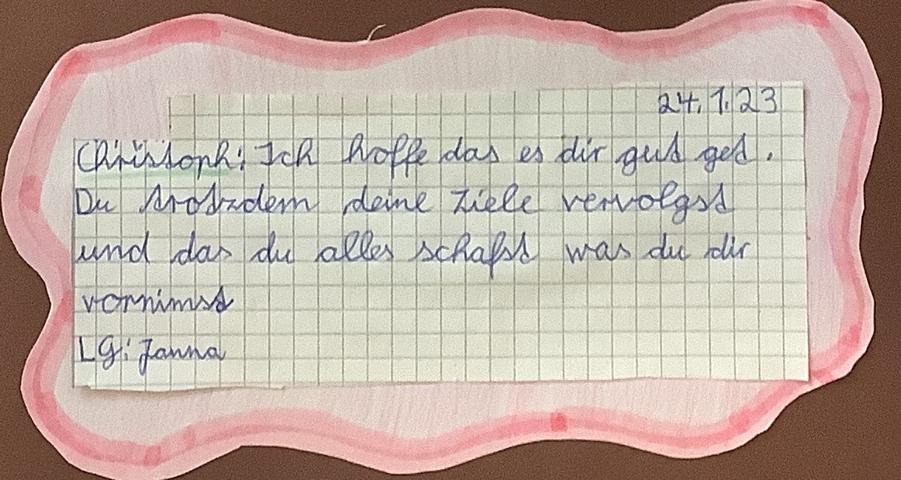 24.1.23
Christoph: Ich hoffe das es dir gut get.
Du trotzdem deine Ziele vervolgst
und das du alles schafst was du dir
vornimst
LG: Janna